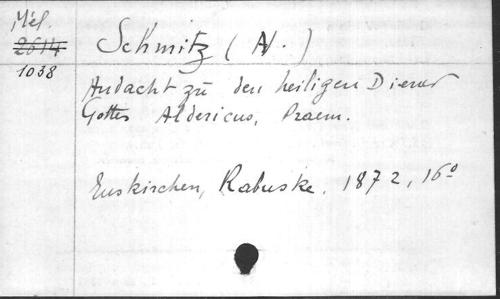 Mél.
2614
1038
Schmitz (N.)
Andacht zu den heiligen Diener
Gottes Aldericus, Praem.
Euskirchen, Rabuske. 1872, 16°